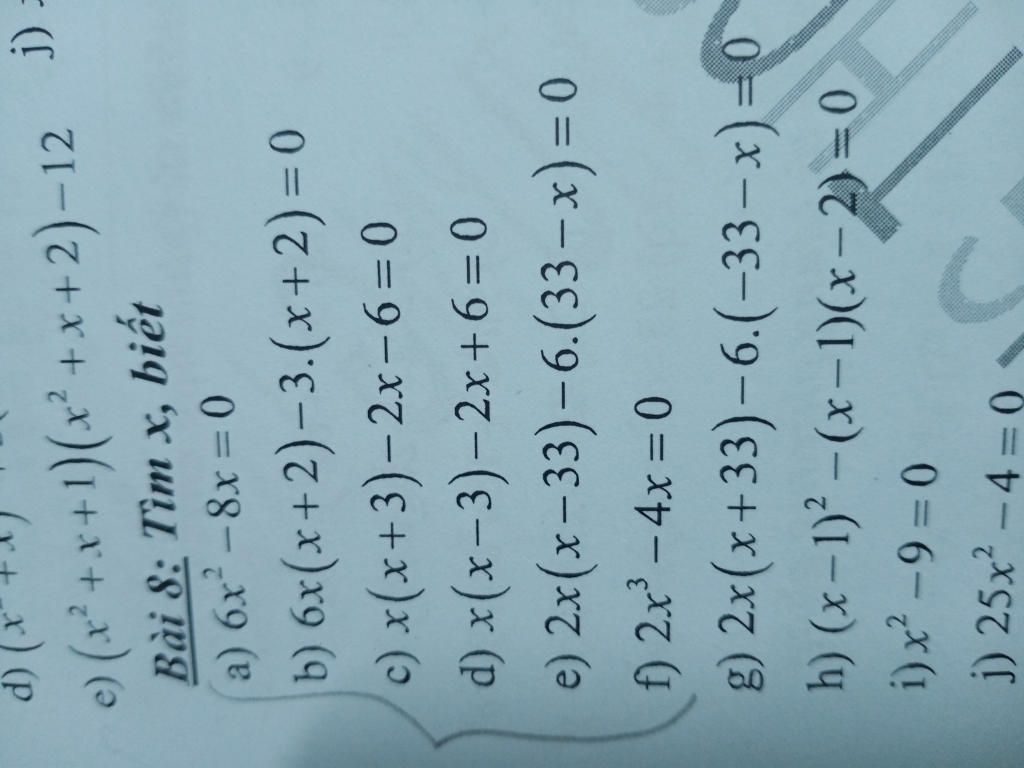 d) (x² + x)
e) (x² + x + 1)(x² + x + 2) − 12
j)
Bài 8: Tìm x, biết
a) 6x² − 8x = 0
b) 6x(x + 2) − 3.(x + 2) = 0
c) x(x + 3) − 2x − 6 = 0
d) x(x − 3) − 2x + 6 = 0
e) 2x(x − 33) − 6.(33 − x) = 0
f) 2x³ − 4x = 0
g) 2x(x + 33) − 6.(−33 − x) = 0
h) (x − 1)² − (x − 1)(x − 2) = 0
i) x² − 9 = 0
j) 25x² − 4 = 0